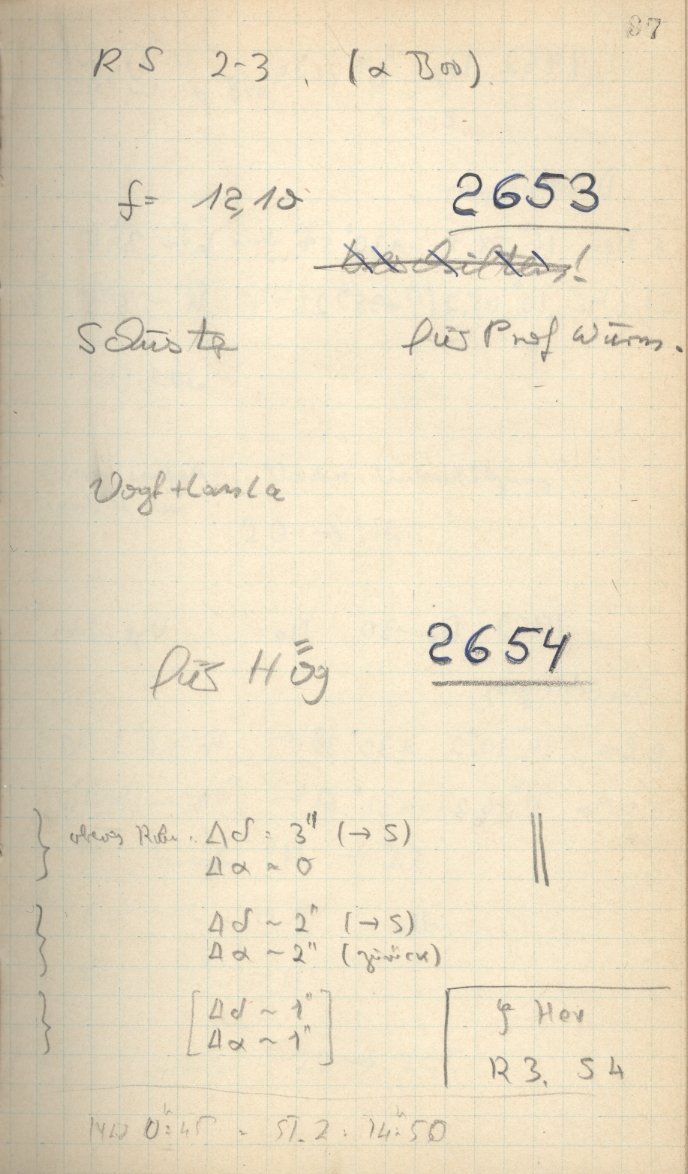 87
RS 2-3. (α Boo)
f= 12,10 2653
Schuster für Prof Wurm.
Vogt
für Hög 2654
Δδ = 3" (→ S)
Δα ≈ 0
Δδ ~ 2" (→ S)
Δα ~ 2" (zurück)
[Δδ ~ 1"
Δα ~ 1"]
ζ Her
R3. S4
0:45 - ST. 2: 14:50